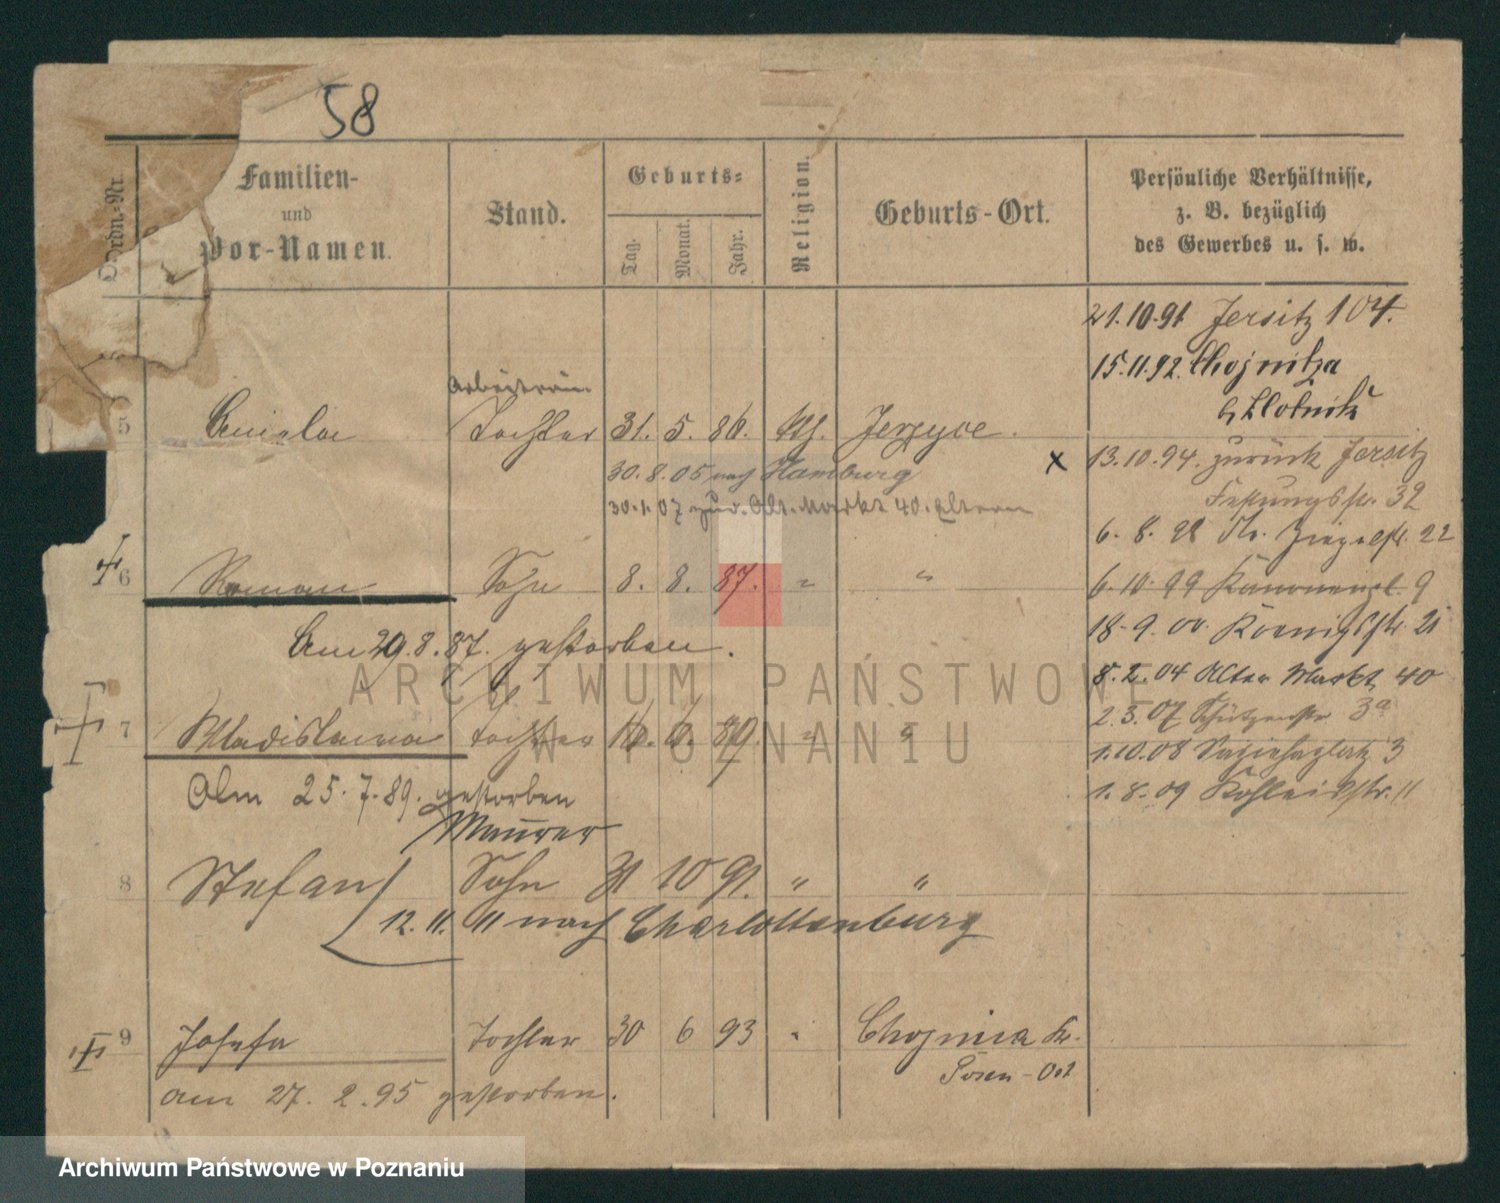 58
Ordn.-Nr.
Familien-
und
Vor-Namen.
Stand.
Geburts-
Tag.
Monat.
Jahr.
Religion.
Geburts-Ort.
Persönliche Verhältnisse,
z. B. bezüglich
des Gewerbes u. s. w.
21.10.91 Jersitz 104.
15.11.92. Chojnitza
b/ Zlotnik
Arbeiterin
5 Aniela Tochter 31. 5. 86. kth. Jerzyce.
x 13.10.94. zurück Jersitz
30.8.05 nach Hamburg
Festungsstr. 32
30.1.07 zur. Alt. Markt 40. Eltern
6. 8. 98 Kl. 22
6 Roman Sohn 8. 8. 87. " "
6.10.99 9
Am 29.8.87. gestorben.
18.9.00. Koenigsstr. 21
8.2.04 Alter Markt 40
2.3.07 Schützenstr 3a
7 Wladislawa Tochter 16. 6. 89. " "
1.10.08 Sapiehaplatz 3
Am 25.7.89. gestorben
1.8.09 11
Maurer
8 Stefan Sohn 31 10 91. " "
12.11.11 nach Charlottenburg
9 Josefa Tochter 30 6 93 " Chojnica Kr.
Posen-Ost
am 27.2.95 gestorben.
ARCHIWUM PAŃSTWOWE
W POZNANIU
Archiwum Państwowe w Poznaniu